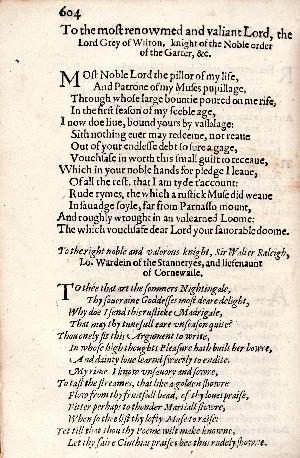 604
To the most renowmed and valiant Lord, the
Lord Grey of Wilton, knight of the Noble order
of the Garter, &c.
MOst Noble Lord the pillor of my life,
And Patrone of my Muses pupillage,
Through whose large bountie poured on me rife,
In the first season of my feeble age,
I now doe liue, bound yours by vassalage:
Sith nothing euer may redeeme, nor reaue
Out of your endlesse debt so sure a gage,
Vouchsafe in worth this small guift to receaue,
Which in your noble hands for pledge I leaue,
Of all the rest, that I am tyde t'account:
Rude rymes, the which a rustick Muse did weaue
In sauadge soyle, far from Parnasso mount,
And roughly wrought in an vnlearned Loome:
The which vouchsafe dear Lord your fauorable doome.
To the right noble and valorous knight, Sir Walter Raleigh,
Lo. Wardein of the Stanneryes, and lieftenaunt
of Cornewaile.
TO thee that art the sommers Nightingale,
Thy soueraine Goddesses most deare delight,
Why doe I send this rusticke Madrigale,
That may thy tunefull eare vnseason quite?
Thou onely fit this Argument to write,
In whose high thoughts Pleasure hath built her bowre,
And dainty loue learnd sweetly to endite.
My rimes I know vnsauory and sowre,
To tast the streames, that like a golden showre
Flow from thy fruitfull head, of thy loues praise,
Fitter perhaps to thonder Martiall stowre,
When so thee list thy lofty Muse to raise:
Yet till that thou thy Poeme wilt make knowne,
Let thy faire Cinthias praises bee thus rudely showne.